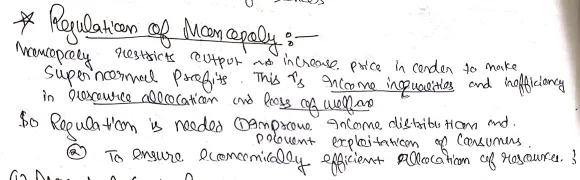 * Regulation of Monopoly :—
Monopoly restricts output → increase price in order to make
Supernormal Profits. This is Income inequalities and inefficiency
in resource allocation and loss of welfare
So Regulation is needed ① Improve Income distribution and.
prevent exploitation of Consumers.
② To ensure economically efficient allocation of resource. }